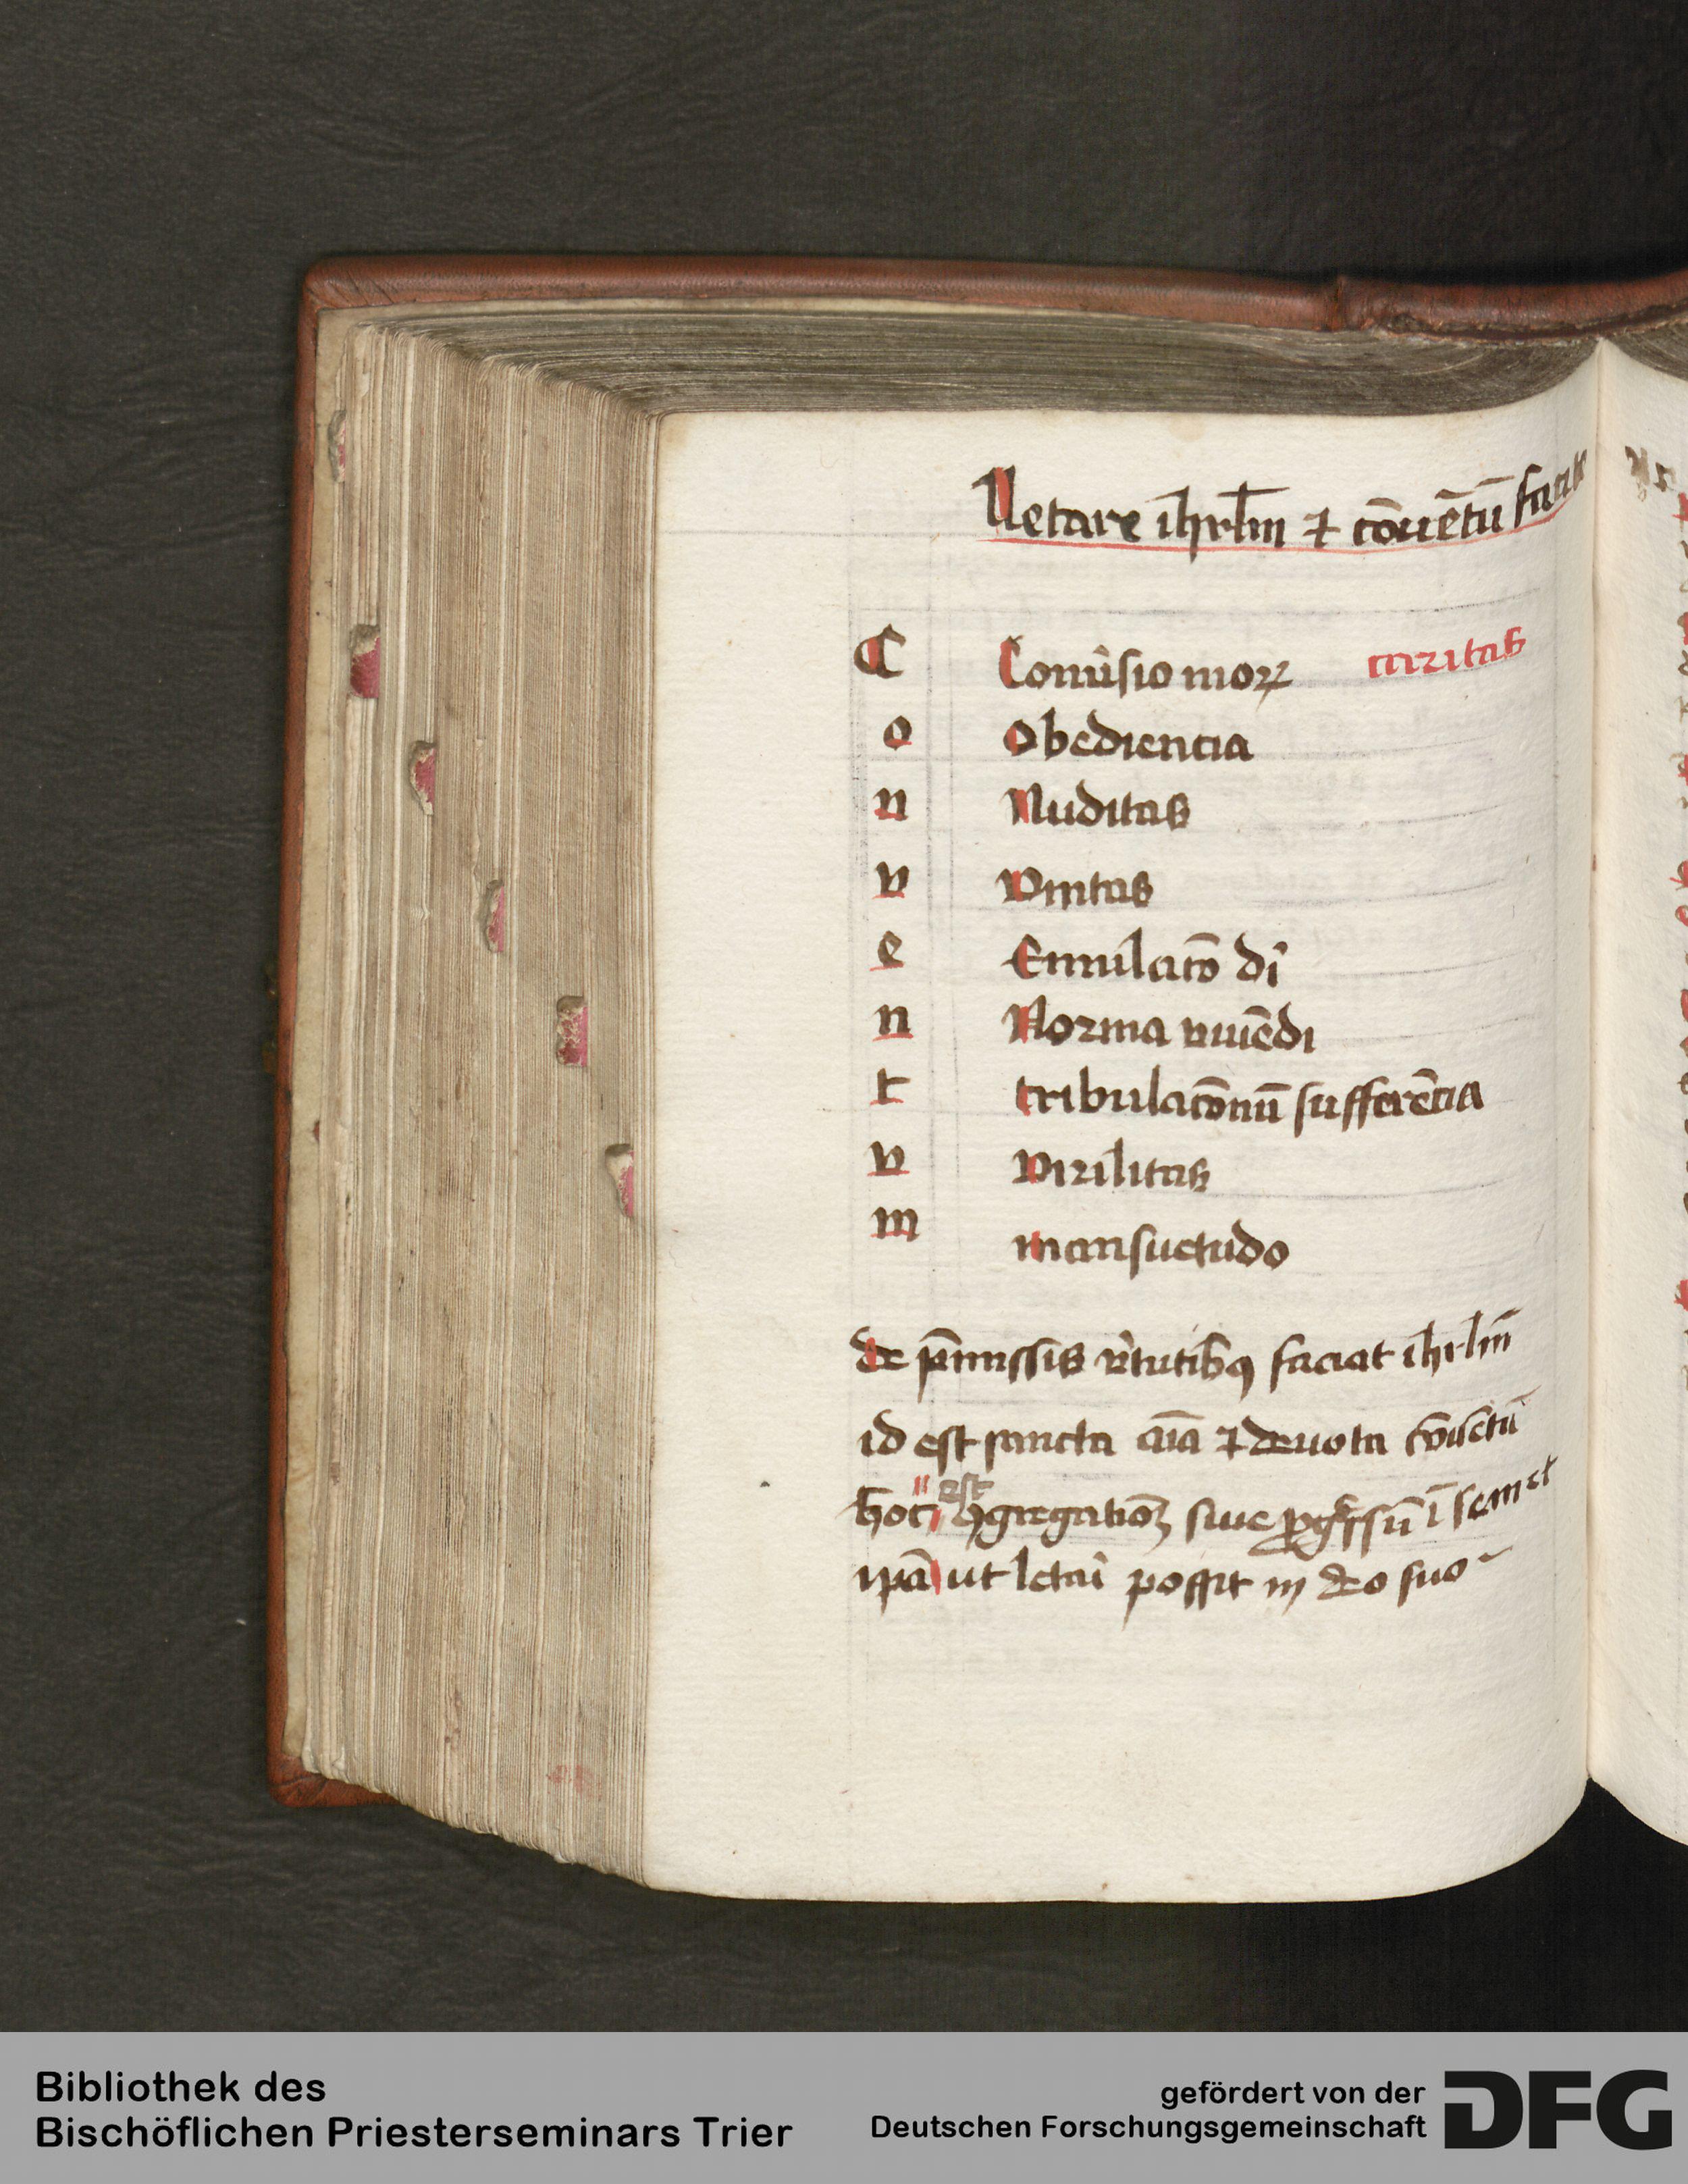 Letare ihrlm ⁊ cōuētū facite
C Conuˀsio moꝝ caritas
o Obediencia
n Nuditas
v Vnitas
e Emulacō dī
n Norma viuēdi
t tribulacōnū sufferēcia
v Virilitas
m mansuetudo
de p̄missis vˀtutibꝫ faciat ihrlm
id est sancta aīa ⁊ deuota ꝯuētū
hoc est ꝯgregationē siue ꝓgˀssū ī semet
ipā ut letaˀi possit in deo suo
Bibliothek des
Bischöflichen Priesterseminars Trier
gefördert von der
Deutschen Forschungsgemeinschaft
DFG